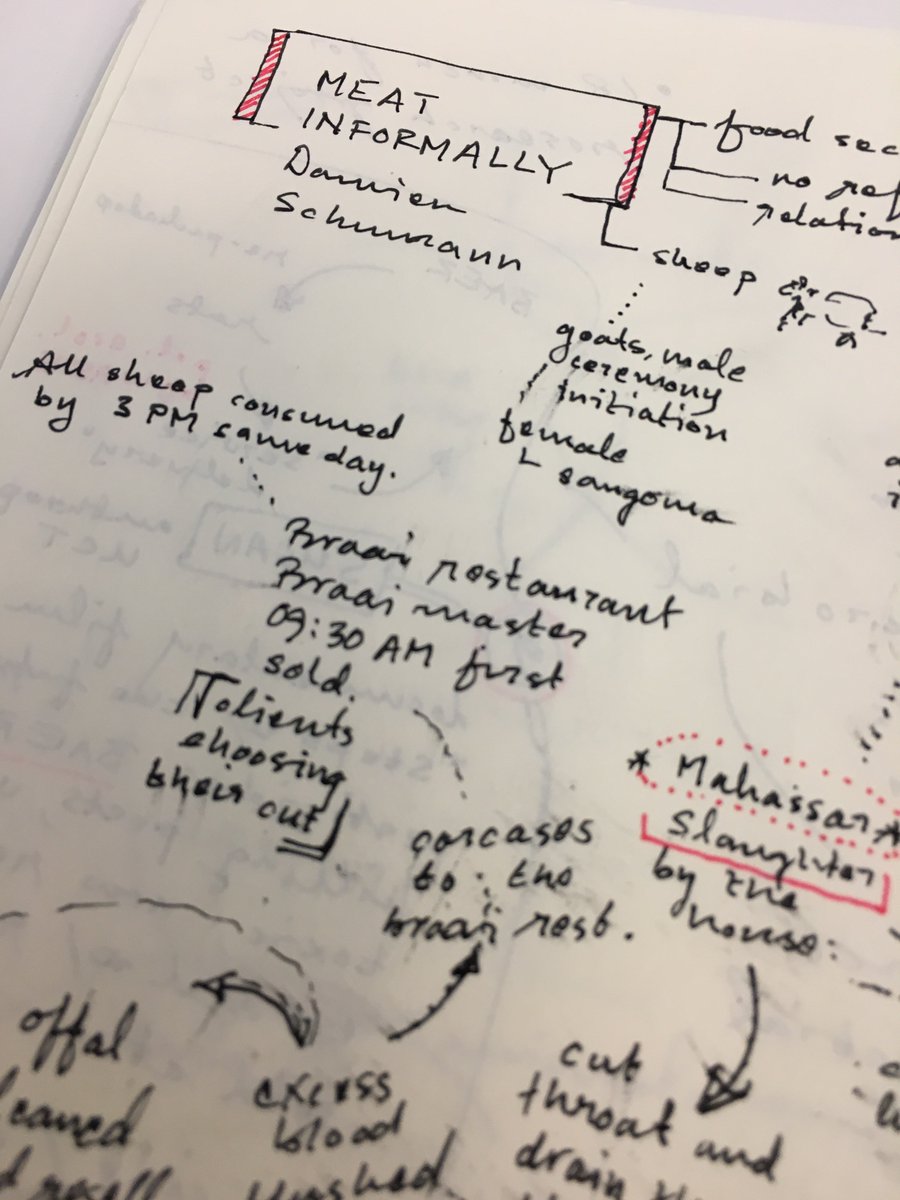 MEAT
INFORMALLY
Damien
Schumann
food sec
no ref
relation
sheep
goats, male
ceremony
initiation
female
sangoma
All sheep consumed
by 3 PM same day.
Braai restaurant
Braai master
09:30 AM first
sold.
clients
choosing
their cut
carcases
to the
braai rest.
* Mahassan *
Slaughter
by the
house:
offal
cleaned
excess
blood
washed
cut
throat and
drain